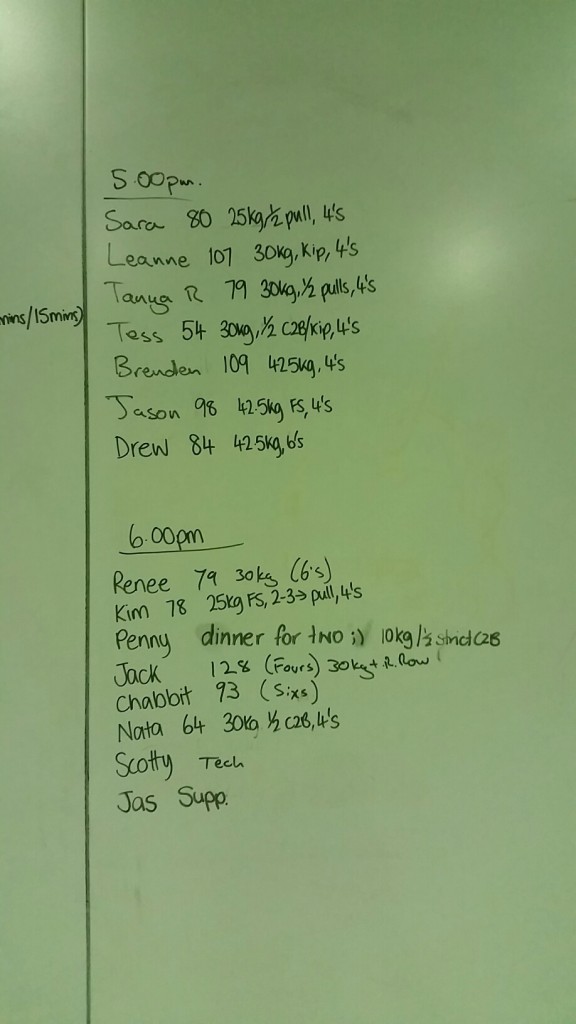 5.00pm.
Sara 80 25kg/½ pull, 4's
Leanne 107 30kg, Kip, 4's
Tanya R 79 30kg, ½ pulls, 4's
mins/15mins)
Tess 54 30kg, ½ C2B/Kip, 4's
Brenden 109 42.5kg, 4's
Jason 98 42.5kg FS, 4's
Drew 84 42.5kg, 6's
6.00pm
Renee 79 30kg (6's)
Kim 78 25kg FS, 2-3→ pull, 4's
Penny dinner for two ;) 10kg/½ strict C2B
Jack 128 (Fours) 30kg + R. Row
Chabbit 93 (Sixs)
Nata 64 30kg ½ C2B, 4's
Scotty Tech
Jas Supp.